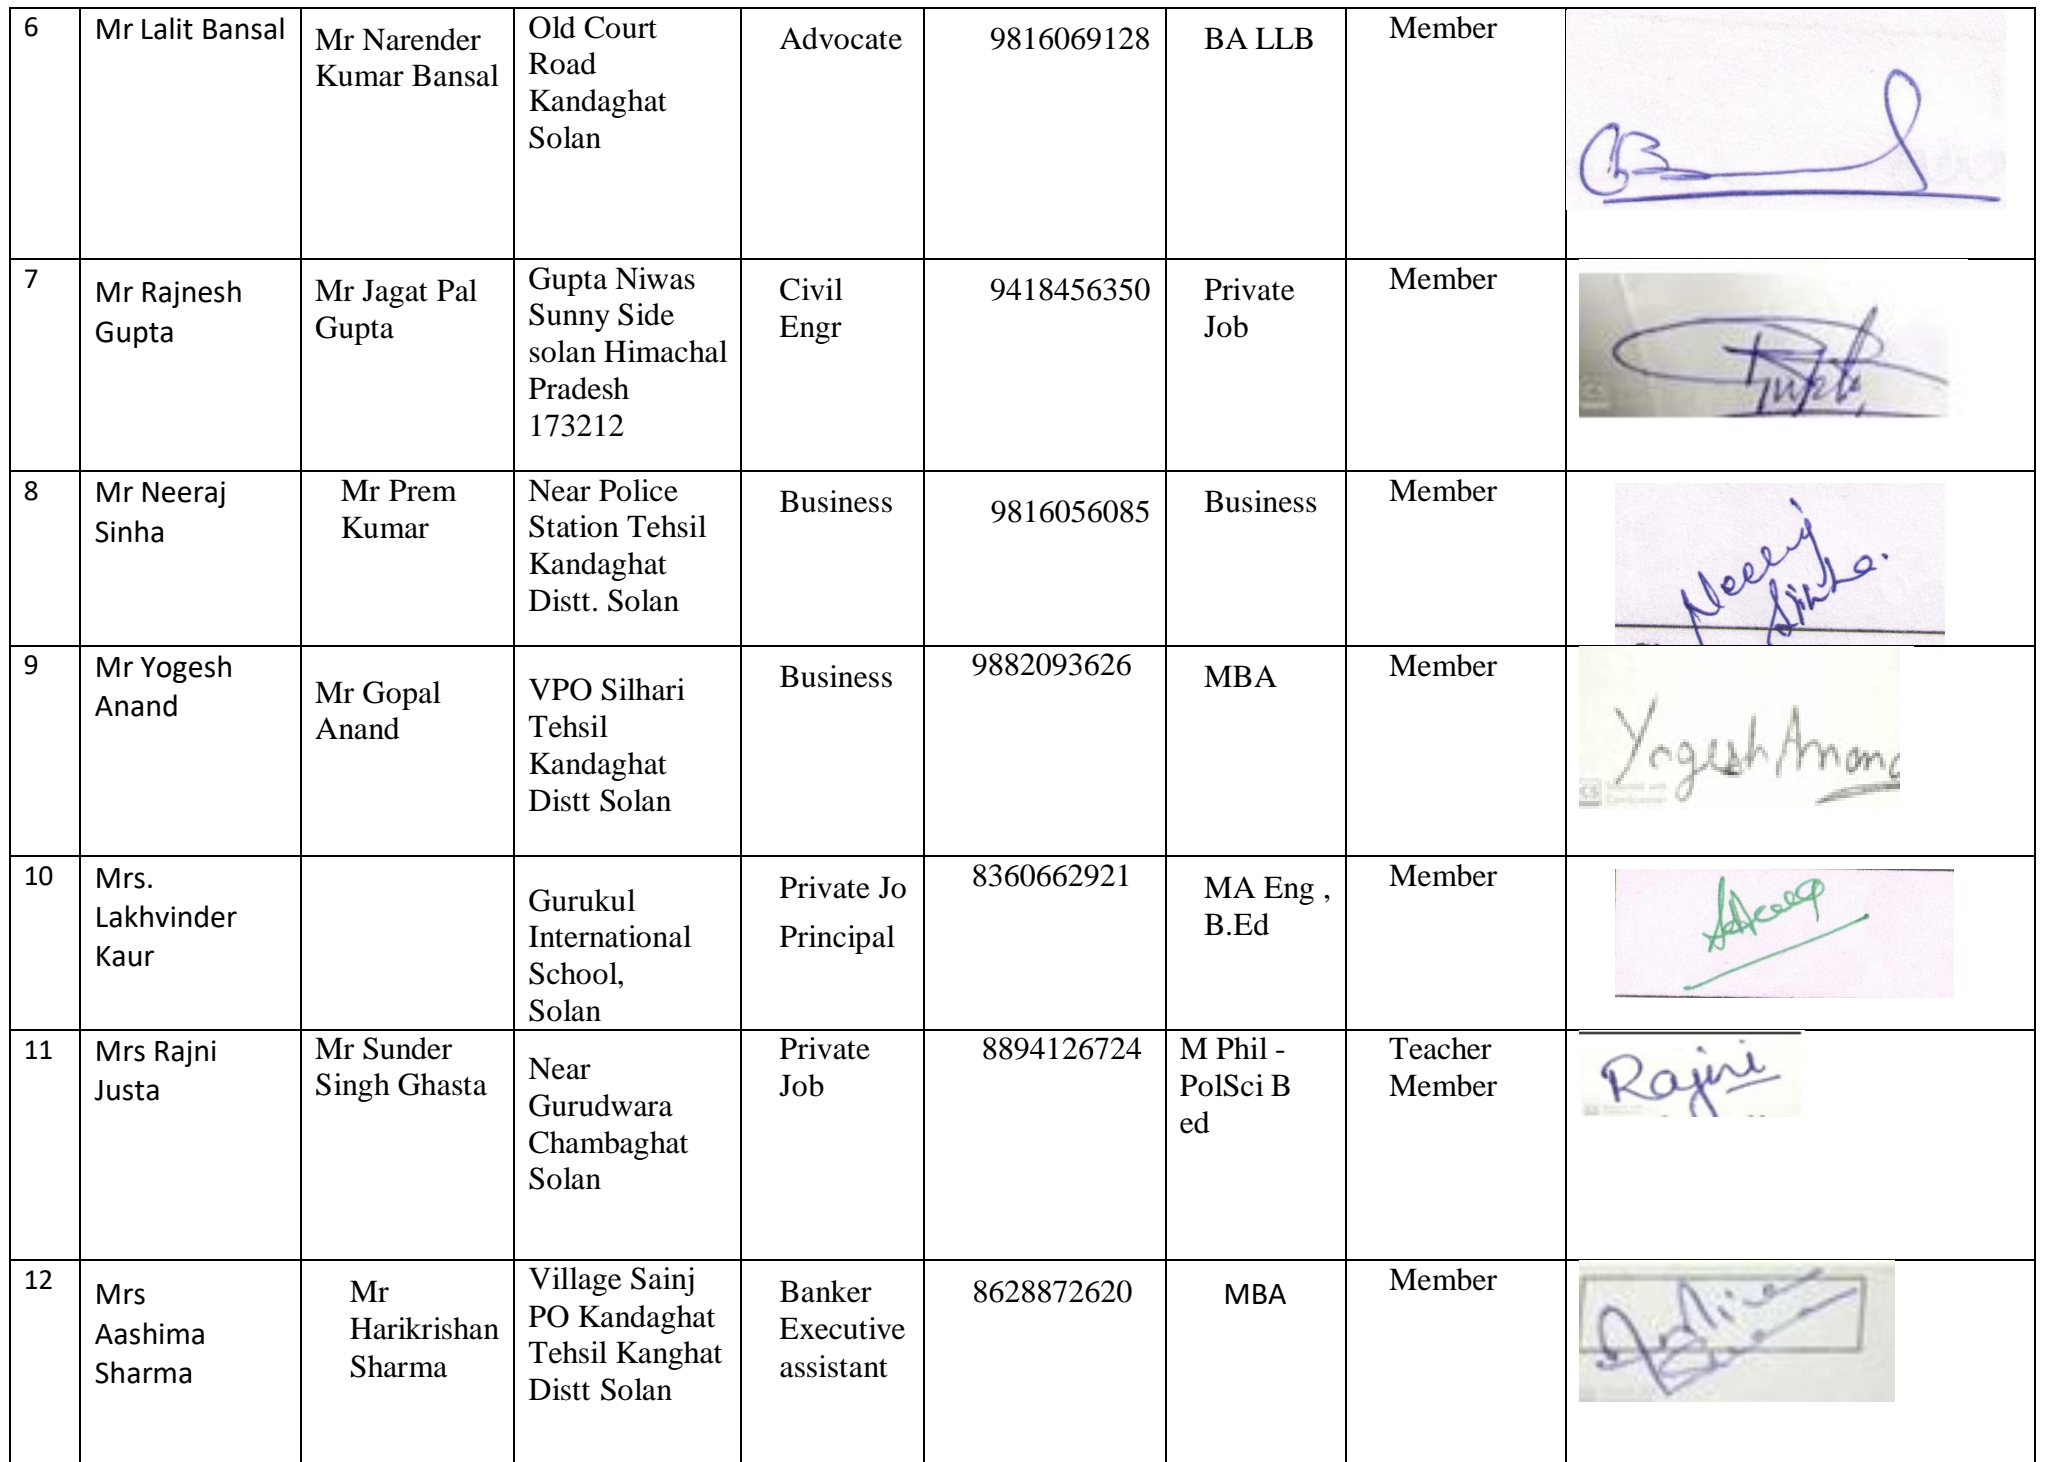 6
Mr Lalit Bansal
Mr Narender
Kumar Bansal
Old Court
Road
Kandaghat
Solan
Advocate
9816069128
BA LLB
Member
7
Mr Rajnesh
Gupta
Mr Jagat Pal
Gupta
Gupta Niwas
Sunny Side
solan Himachal
Pradesh
173212
Civil
Engr
9418456350
Private
Job
Member
8
Mr Neeraj
Sinha
Mr Prem
Kumar
Near Police
Station Tehsil
Kandaghat
Distt. Solan
Business
9816056085
Business
Member
Neeraj
Sinha.
9
Mr Yogesh
Anand
Mr Gopal
Anand
VPO Silhari
Tehsil
Kandaghat
Distt Solan
Business
9882093626
MBA
Member
Yogesh Anand
CS
10
Mrs.
Lakhvinder
Kaur
Gurukul
International
School,
Solan
Private Jo
Principal
8360662921
MA Eng ,
B.Ed
Member
11
Mrs Rajni
Justa
Mr Sunder
Singh Ghasta
Near
Gurudwara
Chambaghat
Solan
Private
Job
8894126724
M Phil -
PolSci B
ed
Teacher
Member
Rajni
12
Mrs
Aashima
Sharma
Mr
Harikrishan
Sharma
Village Sainj
PO Kandaghat
Tehsil Kanghat
Distt Solan
Banker
Executive
assistant
8628872620
MBA
Member